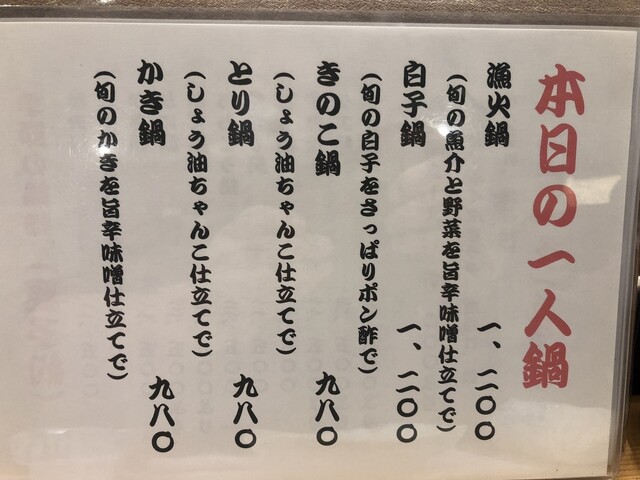 本日の一人鍋
漁火鍋 一、二〇〇
(旬の魚介と野菜を旨辛味噌仕立てで)
白子鍋 一、二〇〇
(旬の白子をさっぱりポン酢で)
きのこ鍋 九八〇
(しょう油ちゃんこ仕立てで)
とり鍋 九八〇
(しょう油ちゃんこ仕立てで)
かき鍋 九八〇
(旬のかきを旨辛味噌仕立てで)